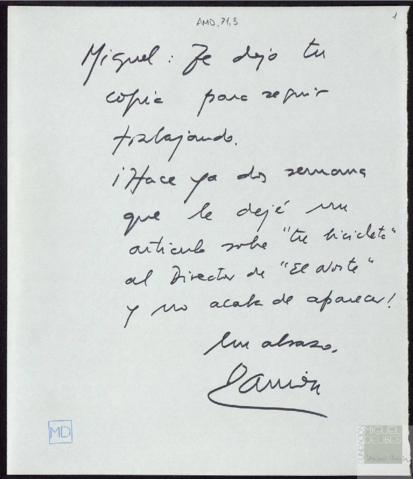 AMD, 71, 3
1
Miguel: Te dejo tu
copia para seguir
trabajando.
¡Hace ya dos semana
que le dejé un
artículo sobre "tu bicicleta"
al Director de "El Norte"
y no acaba de aparecer!
Un abrazo,
Ramón
MD
MIGUEL
DELIBES